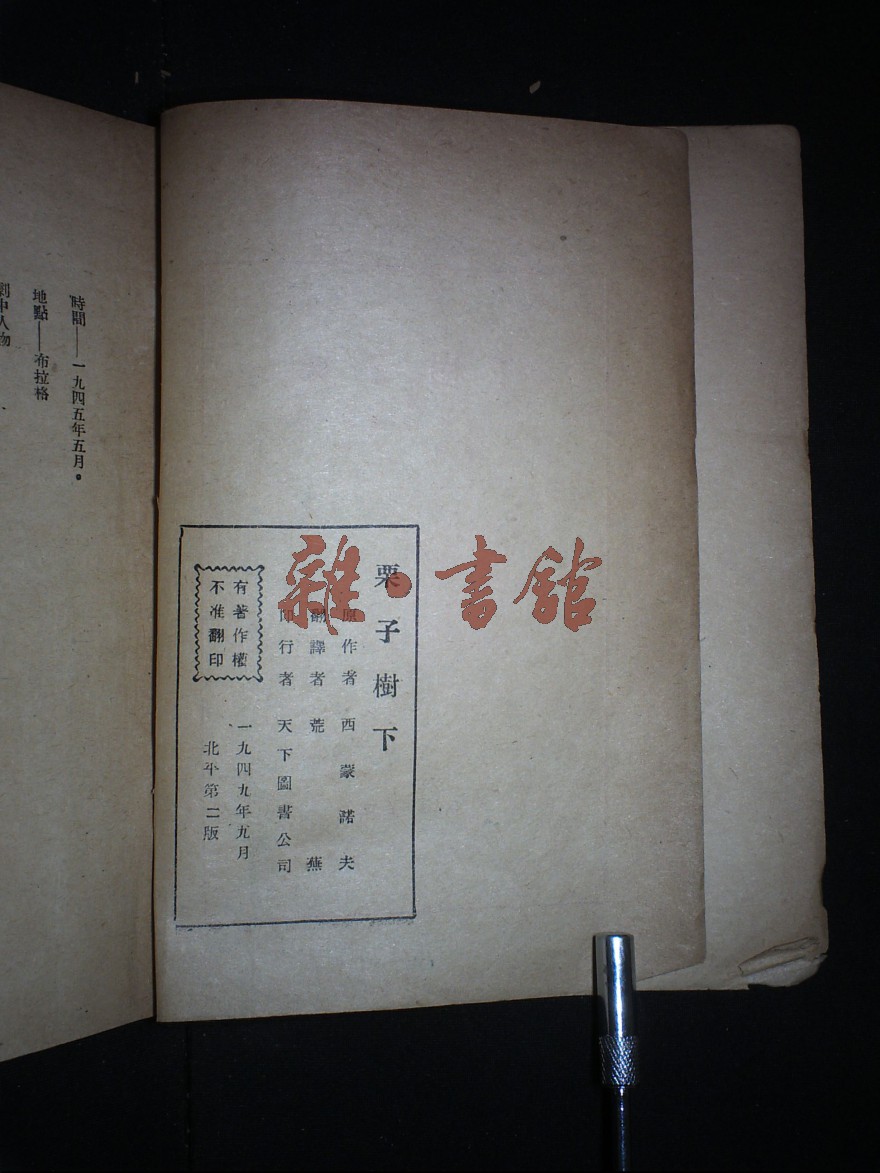 栗子樹下
原作者 西蒙諾夫
翻譯者 荒蕪
印行者 天下圖書公司
有著作權
不准翻印
一九四九年九月
北平第二版
時間——一九四五年五月。
地點——布拉格
劇中人物
雜·書館